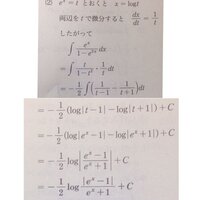 (2) e^x = t とおくと x = log t
両辺を t で微分すると dx/dt = 1/t
したがって
∫ e^x/(1-e^{2x}) dx
= ∫ t/(1-t^2) · 1/t dt
= -1/2 ∫ (1/(t-1) - 1/(t+1)) dt
= -1/2 (log|t-1| - log|t+1|) + C
= -1/2 (log|e^x-1| - log|e^x+1|) + C
= -1/2 log|(e^x-1)/(e^x+1)| + C
= -1/2 log |e^x-1|/(e^x+1) + C